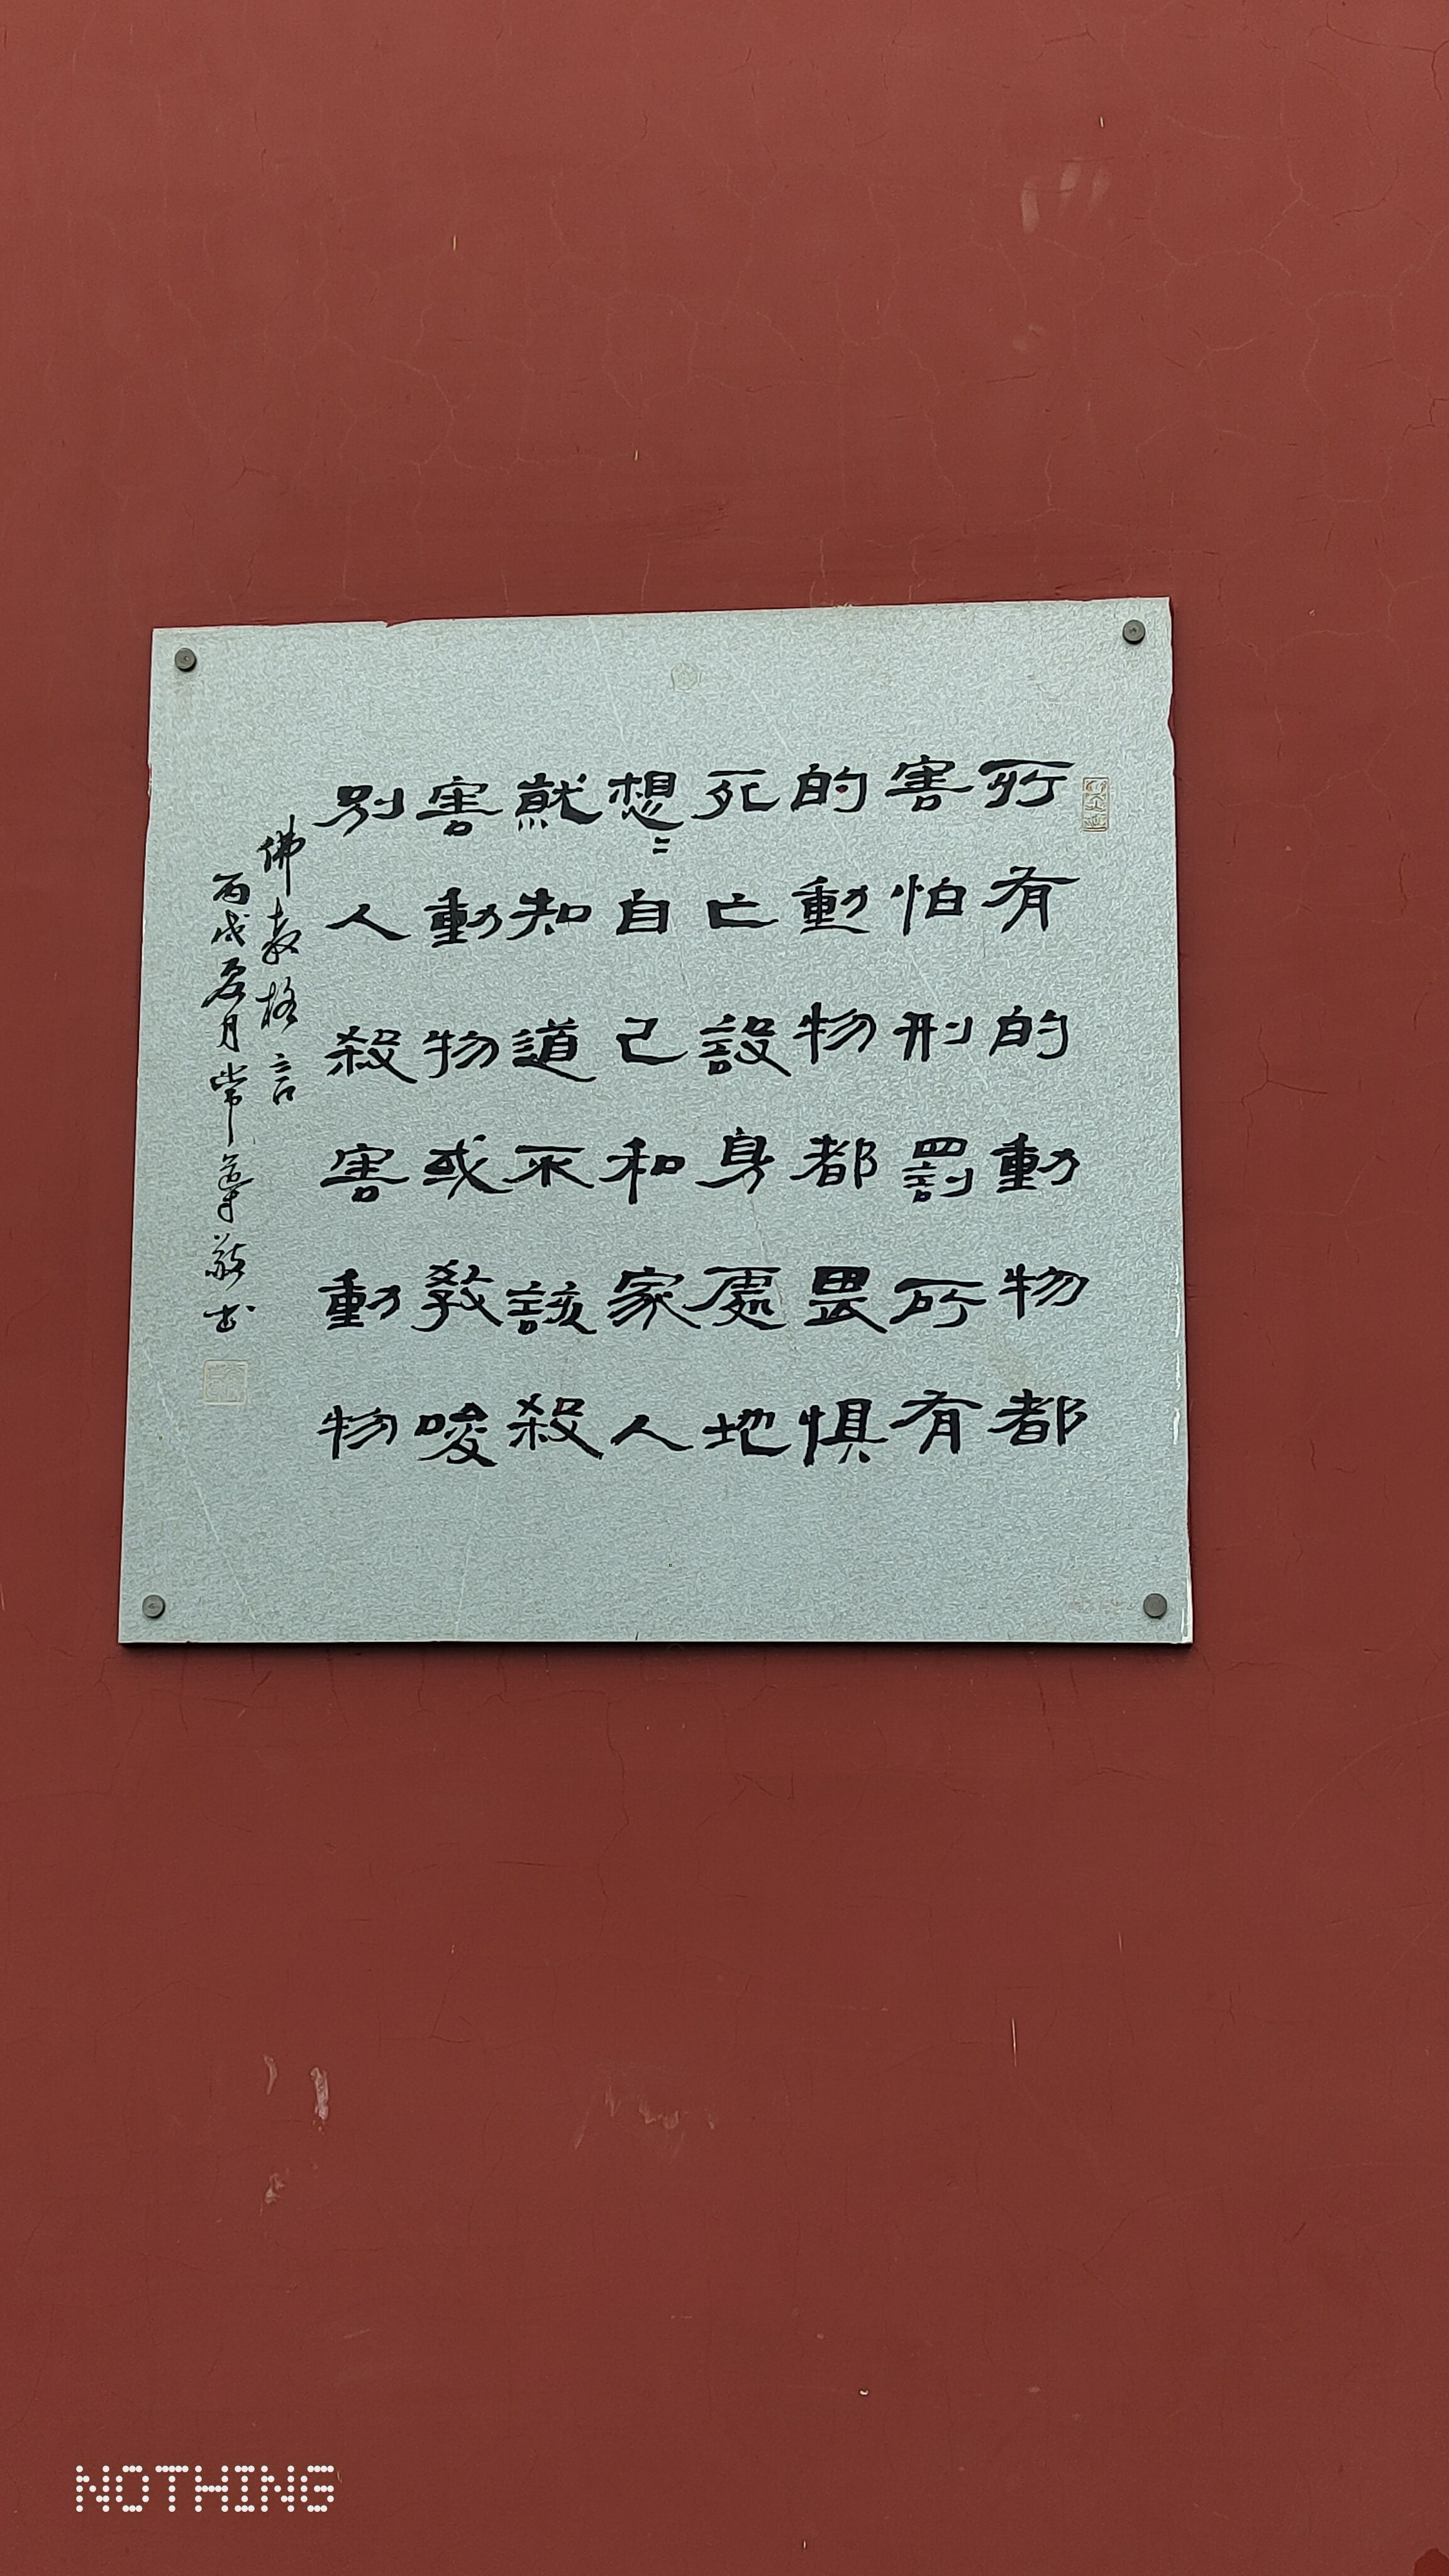 所有的動物都
害怕刑罰所有
的動物都畏惧
死亡設身處地
想〻自己和家人
就知道不該殺
害動物或教唆
別人殺害動物
佛教格言
丙戌夏月常肇敬书
NOTHING